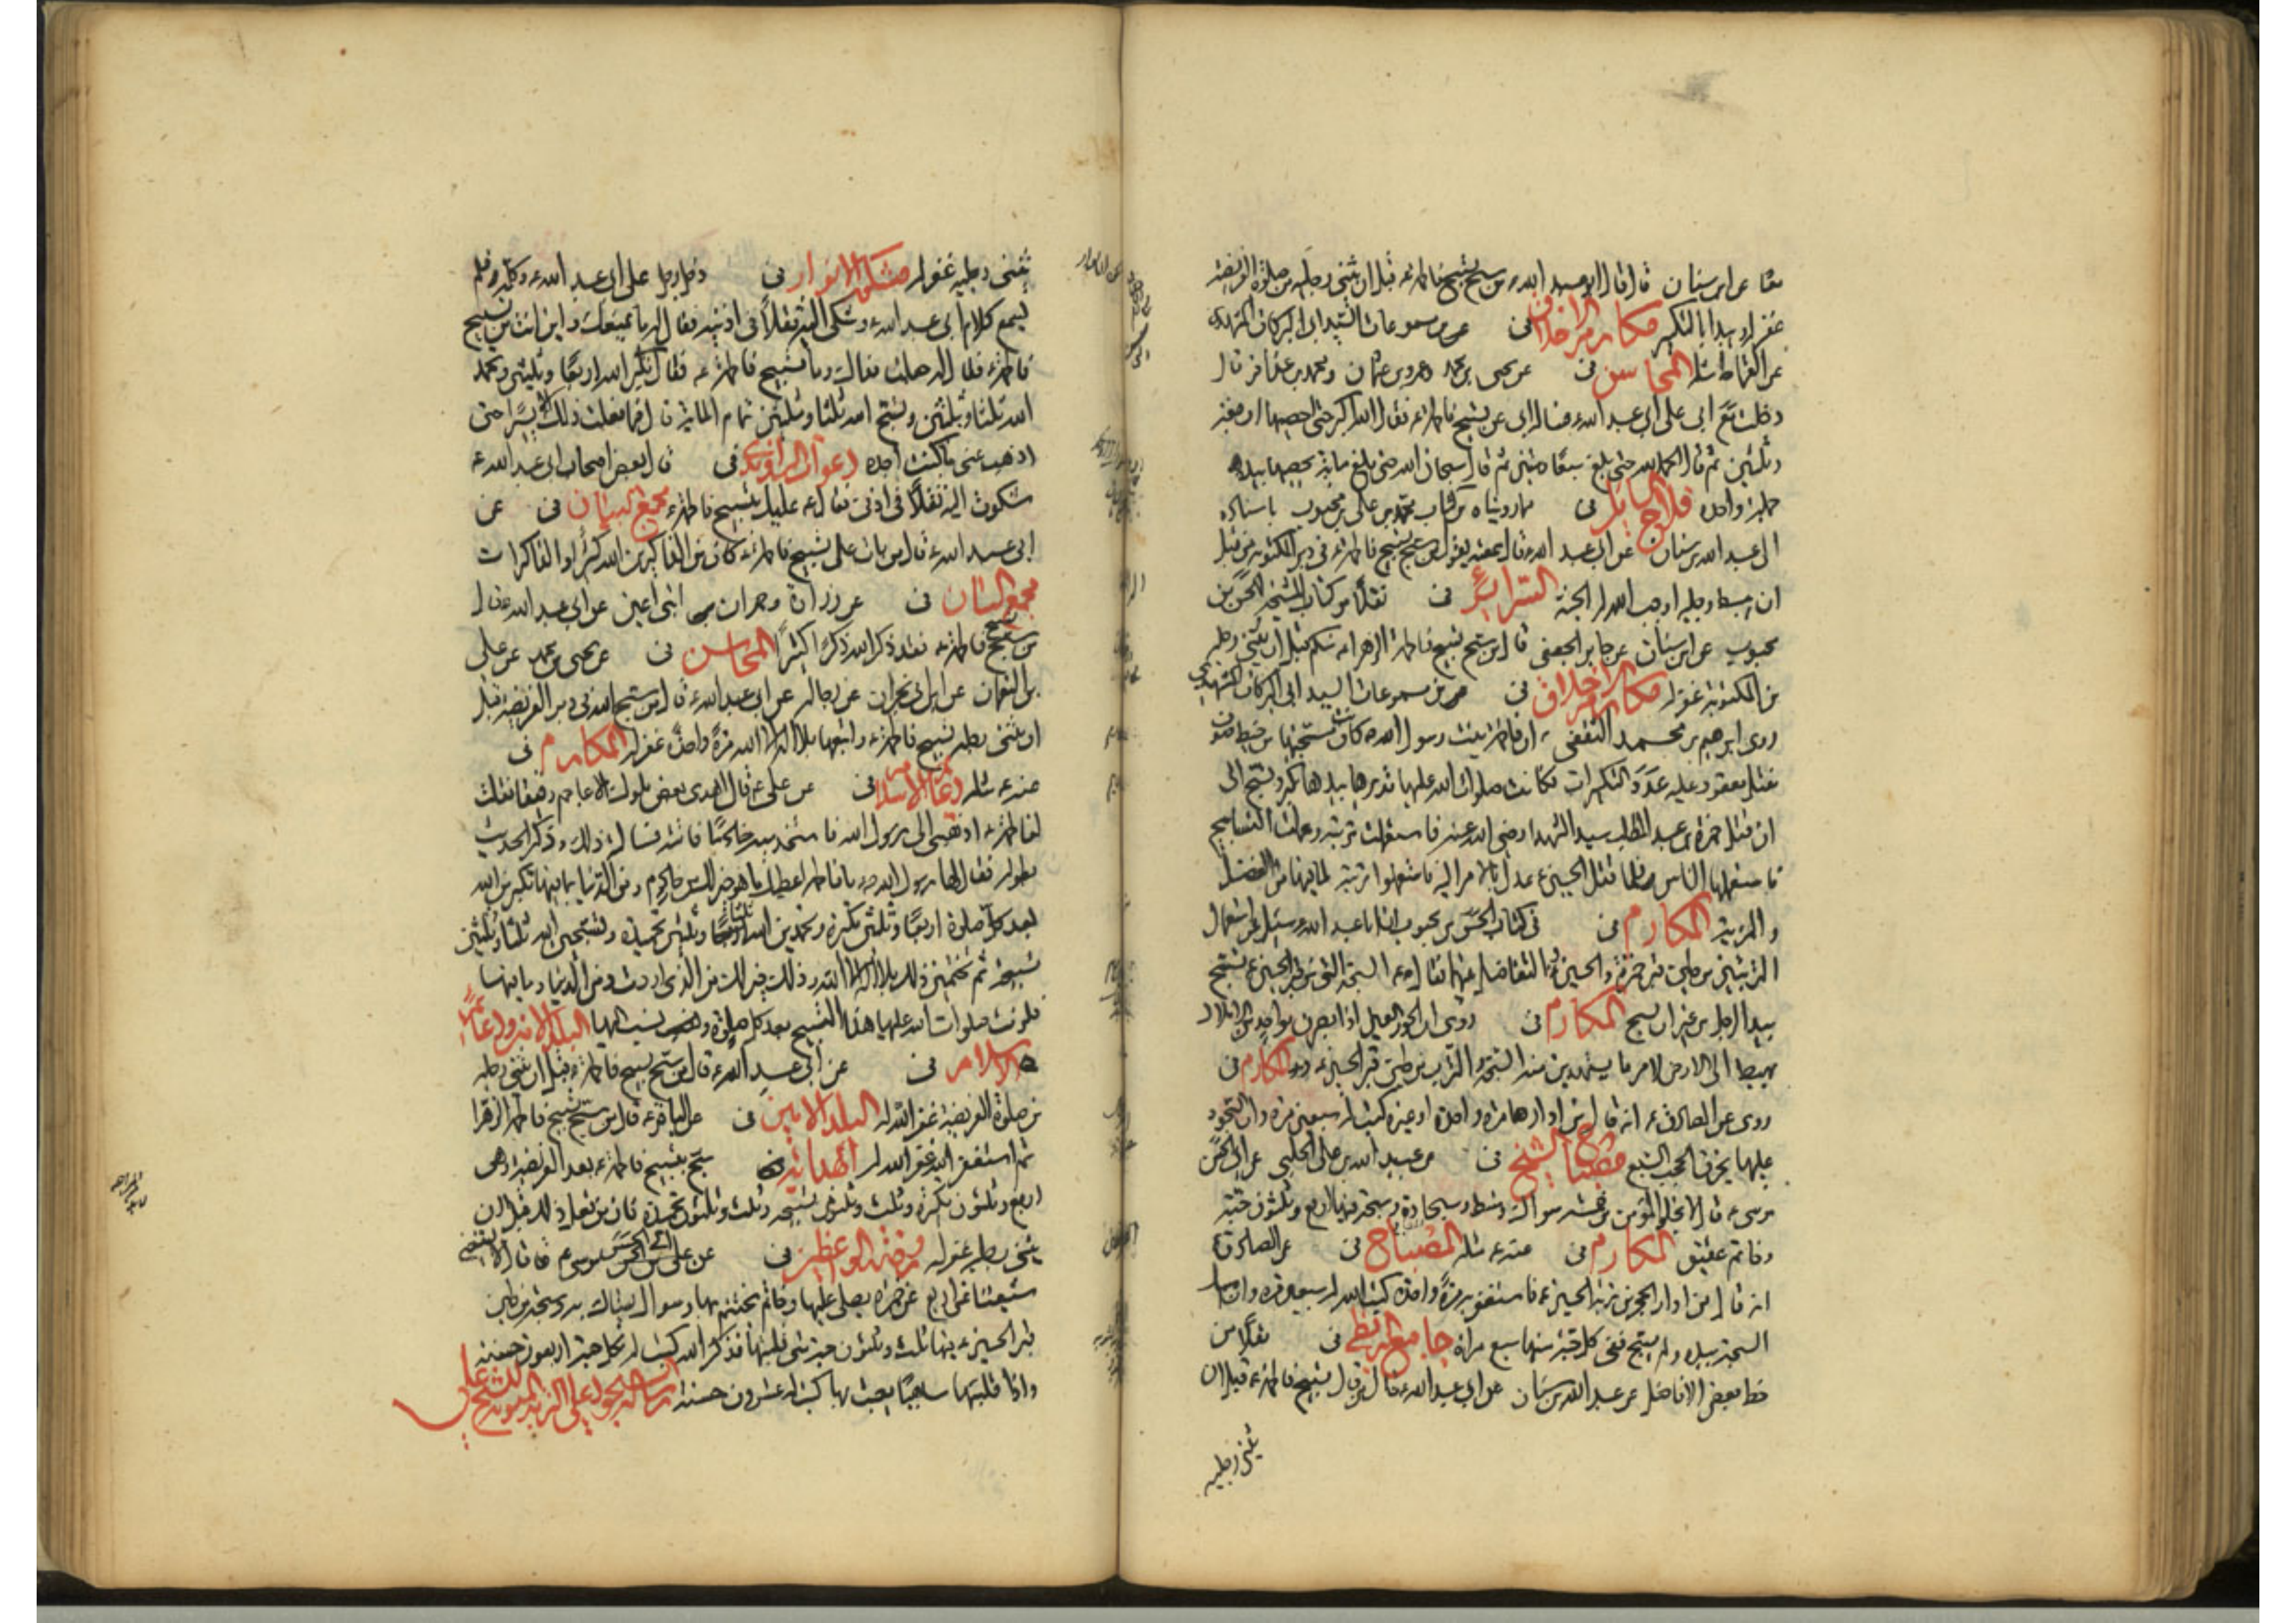 معا عن ابن سنان قال قال ابو عبد الله ع من سبح تسبيح فاطمة ع قبل ان يثنى رجليه من صلوة الفريضة
غفر له ويبدا بالتكبير مكارم الاخلاق فى من مسموعات السيد ابى البركات المشهدى
مثله المحاسن فى عن يحيى بن محمد وعمرو بن عثمان ومحمد بن عذافر قال
دخلت مع ابى على ابى عبد الله ع فساله ابى عن تسبيح فاطمة ع فقال الله اكبر حتى احصيها اربعة
وثلثين ثم قال الحمد لله حتى بلغ سبعا وستين ثم قال سبحان الله حتى بلغ مائة يحصيها بيده
جملة واحدة فلاح السائل فى مما رويناه من كتاب محمد بن على بن محبوب باسناده
الى عبد الله بن سنان عن ابى عبد الله ع قال سمعته يقول من سبح تسبيح فاطمة ع فى دبر المكتوبة من قبل
ان يبسط رجليه اوجب الله له الجنة السرائر فى نقلا من كتاب المشيخة للحسن بن
محبوب عن ابن سنان عن جابر الجعفى قال من سبح تسبيح فاطمة الزهراء منكم قبل ان يثنى رجله
من المكتوبة غفر له مكارم الاخلاق فى من مسموعات السيد ابى البركات المشهدى
روى ابرهيم بن محمد الثقفى ان فاطمة بنت رسول الله ص كانت سبحتها من خيط صوف
مفتل معقود عليه عدد التكبيرات فكانت صلوات الله عليها تديرها بيدها تكبر وتسبح الى
ان قتل حمزة بن عبد المطلب سيد الشهداء رضى الله عنه فاستعملت تربته وعملت التسابيح
فاستعملها الناس فلما قتل الحسين ع عدل بالامر اليه فاستعملوا تربته لما فيها من الفضل
والمزية المكارم فى فى كتاب الحسن بن محبوب ان ابا عبد الله ع سئل عن استعمال
التربتين من طين قبر حمزة والحسين ع والتفاضل بينهما فقال ع السبحة التى من قبر الحسين ع تسبح
بيد الرجل من غير ان يسبح المكارم فى روى ان الحور العين اذا بصرن بواحد من الاملاك
يهبط الى الارض لامر ما يستهدين منه السبح والترب من طين قبر الحسين ع المكارم فى
روى عن الصادق ع انه قال من ادارها مرة واحدة او غيره كتب له سبعين مرة وان السجود
عليها يخرق الحجب السبع مصباح الشيخ فى عن عبيد الله بن على الحلبى عن ابى الحسن
موسى ع قال لا يخلو المؤمن من خمسة سواك ومشط وسجادة وسبحة فيها اربع وثلثون حبة
وخاتم عقيق المكارم فى عنه ع مثله المصباح فى عن الصادق ع
انه قال من ادار الحجر من تربة الحسين ع فاستغفر به مرة واحدة كتب الله له سبعين مرة وان امسك
السبحة بيده ولم يسبح ففى كل حبة منها سبع مرات جامع البزنطى فى نقلا من
خط بعض الافاضل عن عبد الله بن سنان عن ابى عبد الله ع قال من قال تسبيح فاطمة ع قبل ان
يثنى رجليه
يثنى رجليه غفر له مشكوة الانوار فى دخل رجل على ابى عبد الله ع وكلمه فلم
يسمع كلام ابى عبد الله ع وشكى اليه ثقلا فى اذنيه فقال له ما يمنعك واين انت من تسبيح
فاطمة ع فقال له جعلت فداك وما تسبيح فاطمة ع فقال تكبر الله اربعا وثلثين وتحمد
الله ثلثا وثلثين وتسبح الله ثلثا وثلثين تمام المائة قال فما فعلت ذلك الا يسيرا حتى
اذهب عنى ما كنت اجده دعوات الراوندى فى قال بعض اصحاب ابى عبد الله ع
شكوت اليه ثقلا فى اذنى فقال ع عليك بتسبيح فاطمة ع مجمع البيان فى عن
ابى عبد الله ع قال من بات على تسبيح فاطمة ع كان من الذاكرين الله كثيرا والذاكرات
مجمع البيان فى عن زرارة وحمران ابنى اعين عن ابى عبد الله ع قال
من سبح تسبيح فاطمة ع فقد ذكر الله ذكرا كثيرا المحاسن فى عن يحيى بن محمد عن على
بن النعمان عن ابن ابى نجران عن رجاله عن ابى عبد الله ع قال من سبح الله فى دبر الفريضة قبل
ان يثنى رجليه تسبيح فاطمة ع واتبعها بلا اله الا الله مرة واحدة غفر له المكارم فى
عنه ع مثله دعائم الاسلام فى عن على ع قال اهدى بعض ملوك الاعاجم رقيقا فقلت
لفاطمة ع اذهبى الى رسول الله فاستخدميه خادما فاتته فسالته ذلك وذكر الحديث
بطوله فقال لها رسول الله ص يا فاطمة اعطيك ما هو خير لك من خادم ومن الدنيا بما فيها تكبرين الله
بعد كل صلوة اربعا وثلثين تكبيرة وتحمدين الله ثلثا وثلثين تحميدة وتسبحين الله ثلثا وثلثين
تسبيحة ثم تختمين ذلك بلا اله الا الله وذلك خير لك من الذى اردت ومن الدنيا وما فيها
فلزمت صلوات الله عليها هذا التسبيح بعد كل صلوة ونسب اليها البلد الامين ودعائم
الاسلام فى عن ابى عبد الله ع قال من سبح تسبيح فاطمة ع قبل ان يثنى رجليه
من صلوة الفريضة غفر الله له البلد الامين فى عن الباقر ع قال من سبح تسبيح فاطمة الزهرا
ثم استغفر الله غفر الله له الهداية فى سبح بتسبيح فاطمة ع بعد الفريضة وهى
اربع وثلثون تكبيرة وثلث وثلثون تسبيحة وثلث وثلثون تحميدة فان من فعل ذلك قبل ان
يثنى رجليه غفر له روضة الواعظين فى عن ابى الحسن موسى ع قال لا يستغنى
شيعتنا عن اربع عن خمرة يصلى عليها وخاتم يتختم به وسواك يستاك به وسبحة من طين
قبر الحسين ع فيها ثلث وثلثون حبة متى قلبها فذكر الله كتب له بكل حبة اربعون حسنة
واذا قلبها ساهيا يعبث بها كتب له عشرون حسنة